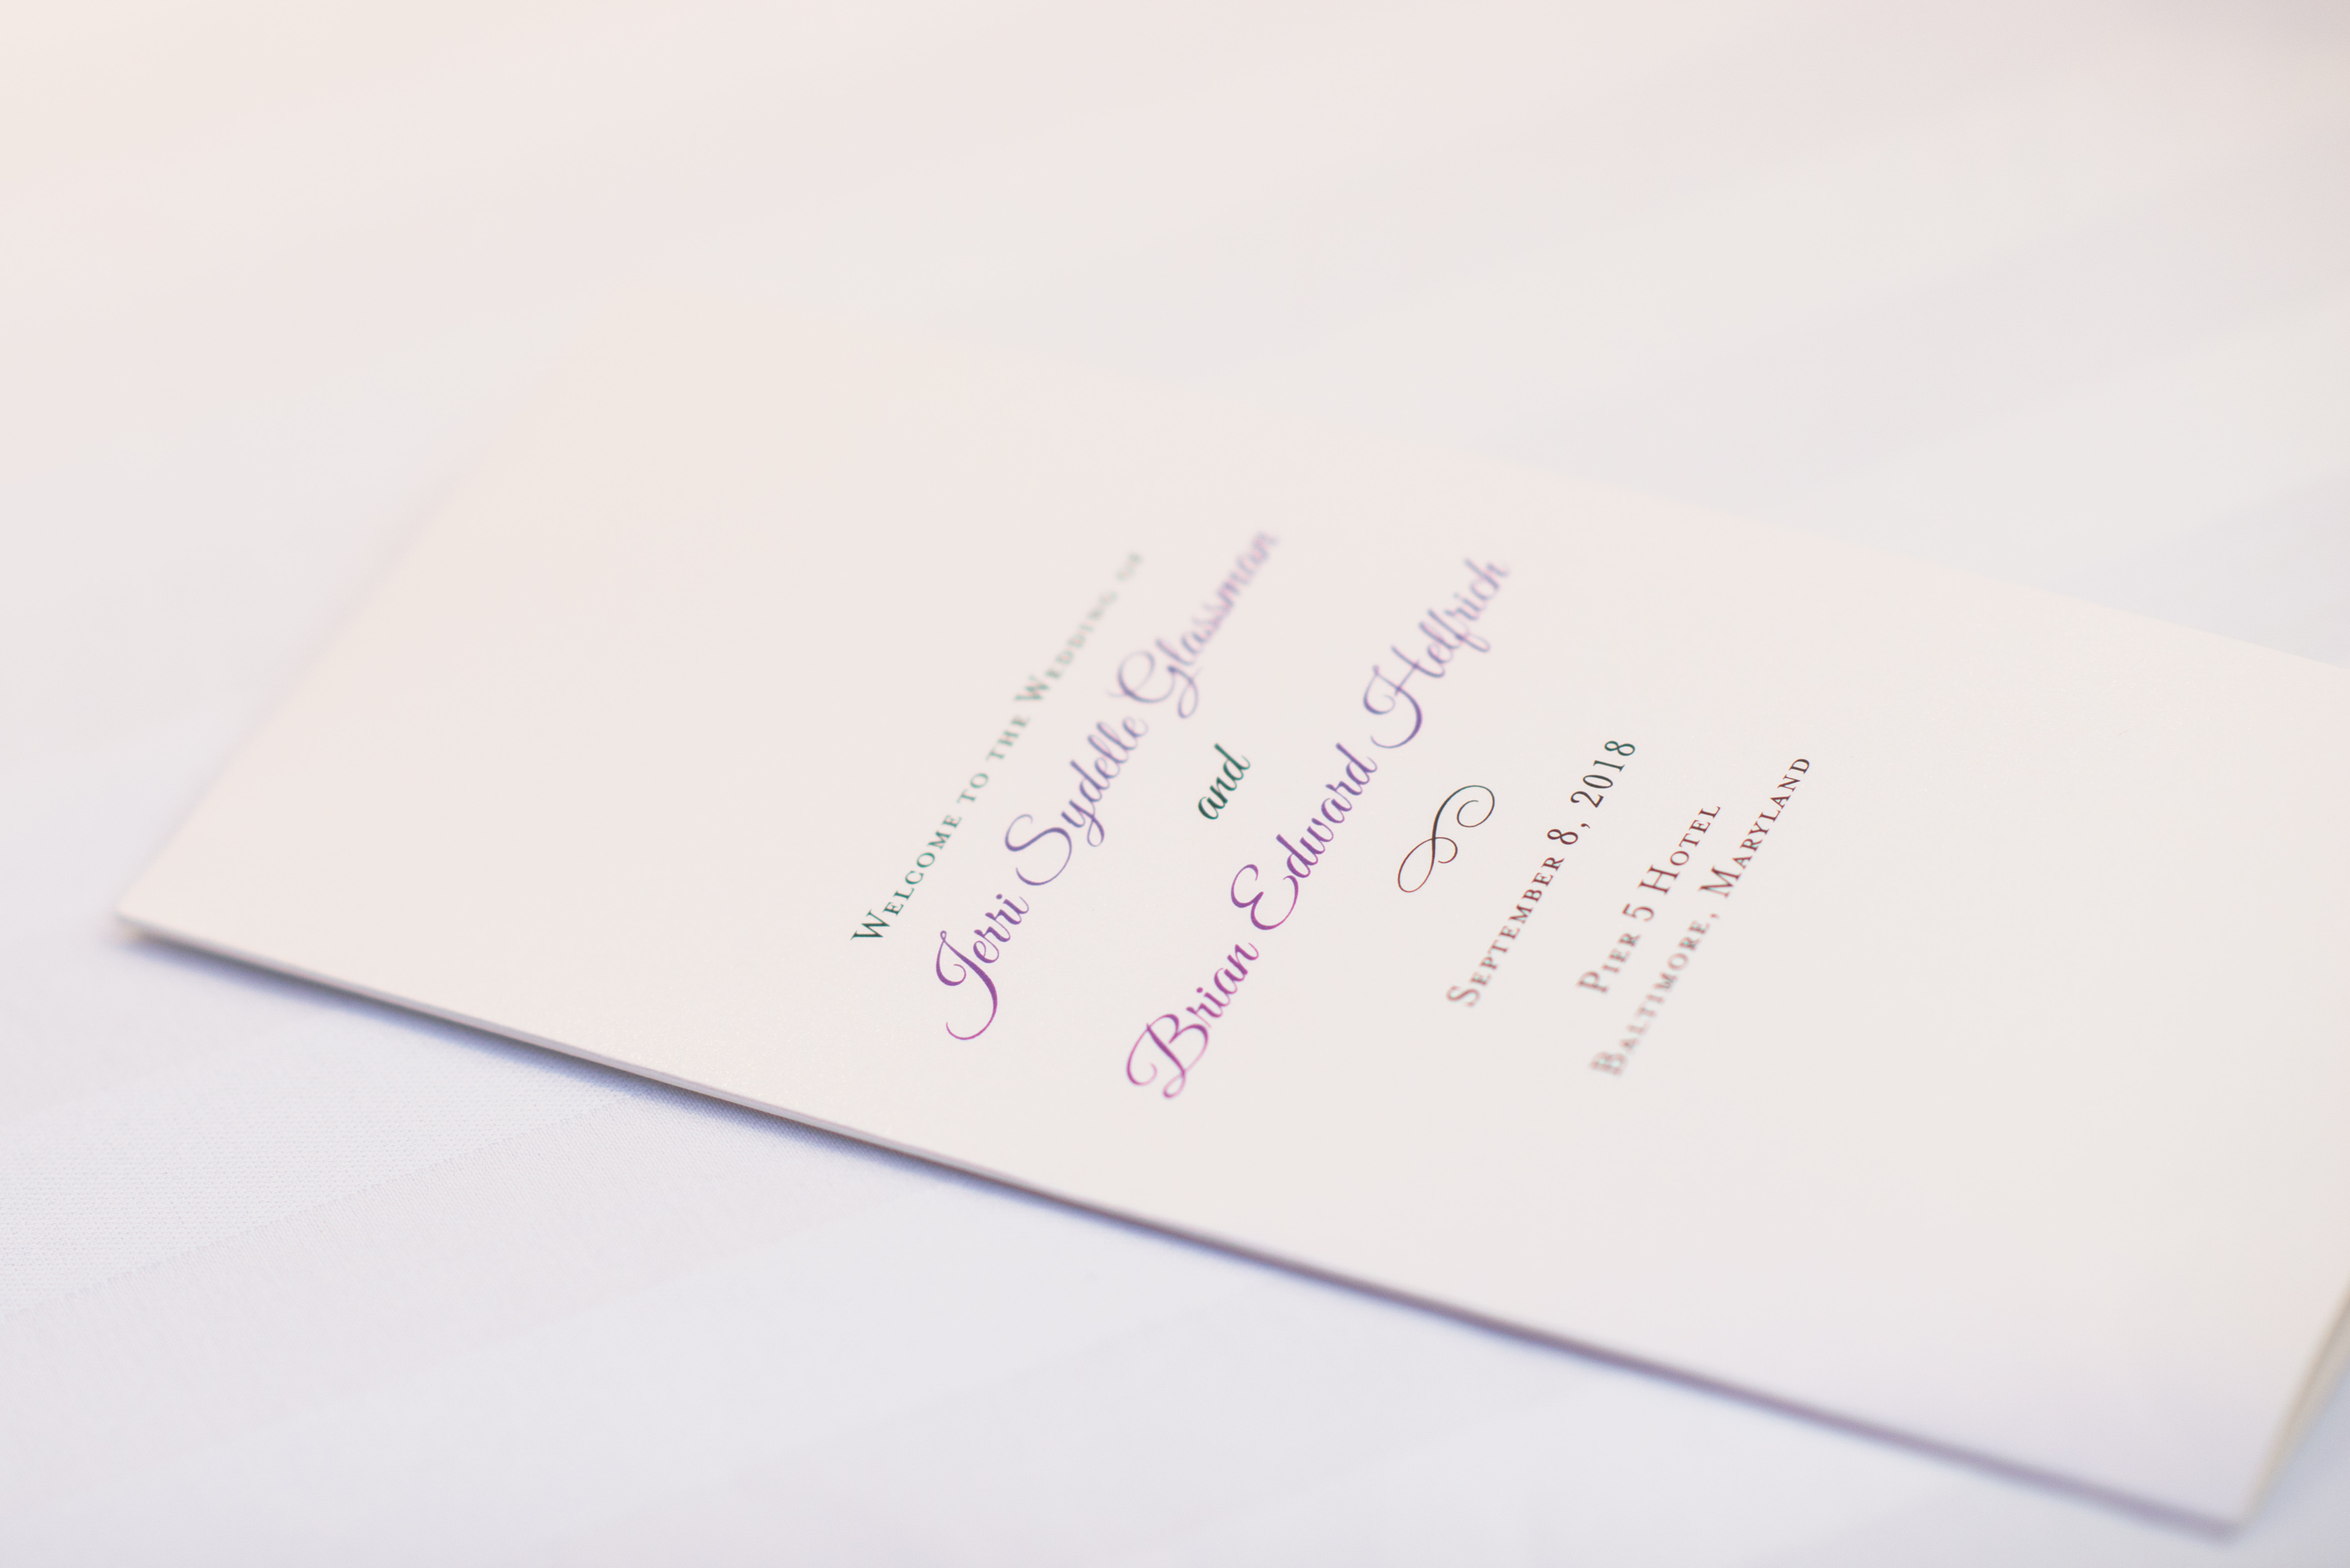 Welcome to the Wedding of
Jerri Sydelle Glassman
and
Brian Edward Helfrich
September 8, 2018
Pier 5 Hotel
Baltimore, Maryland